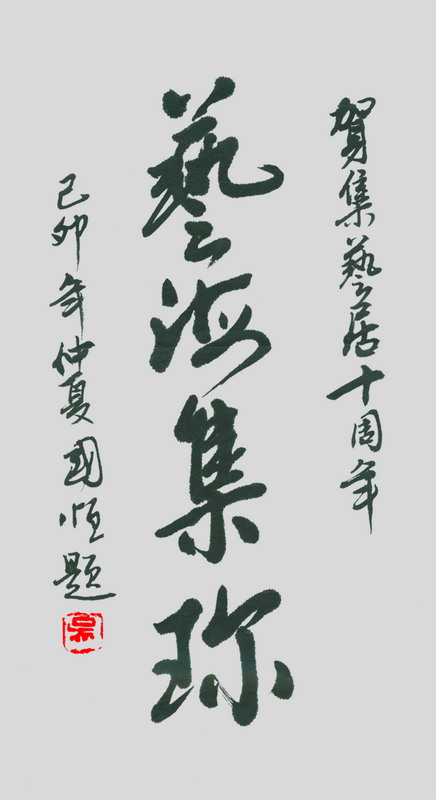 賀集藝居十周年
藝海集珍
己卯年仲夏國恒題